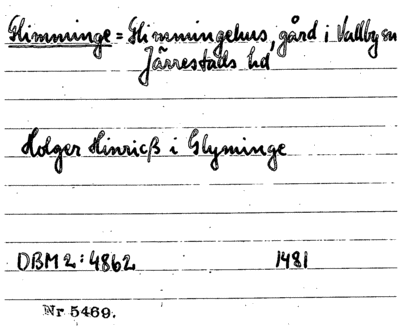 Glimminge = Glimmingehus, gård i Vallby sn
Järrestads hd
Holger Hinricß i Glyminge
DBM 2: 4862 1481
Nr 5469.